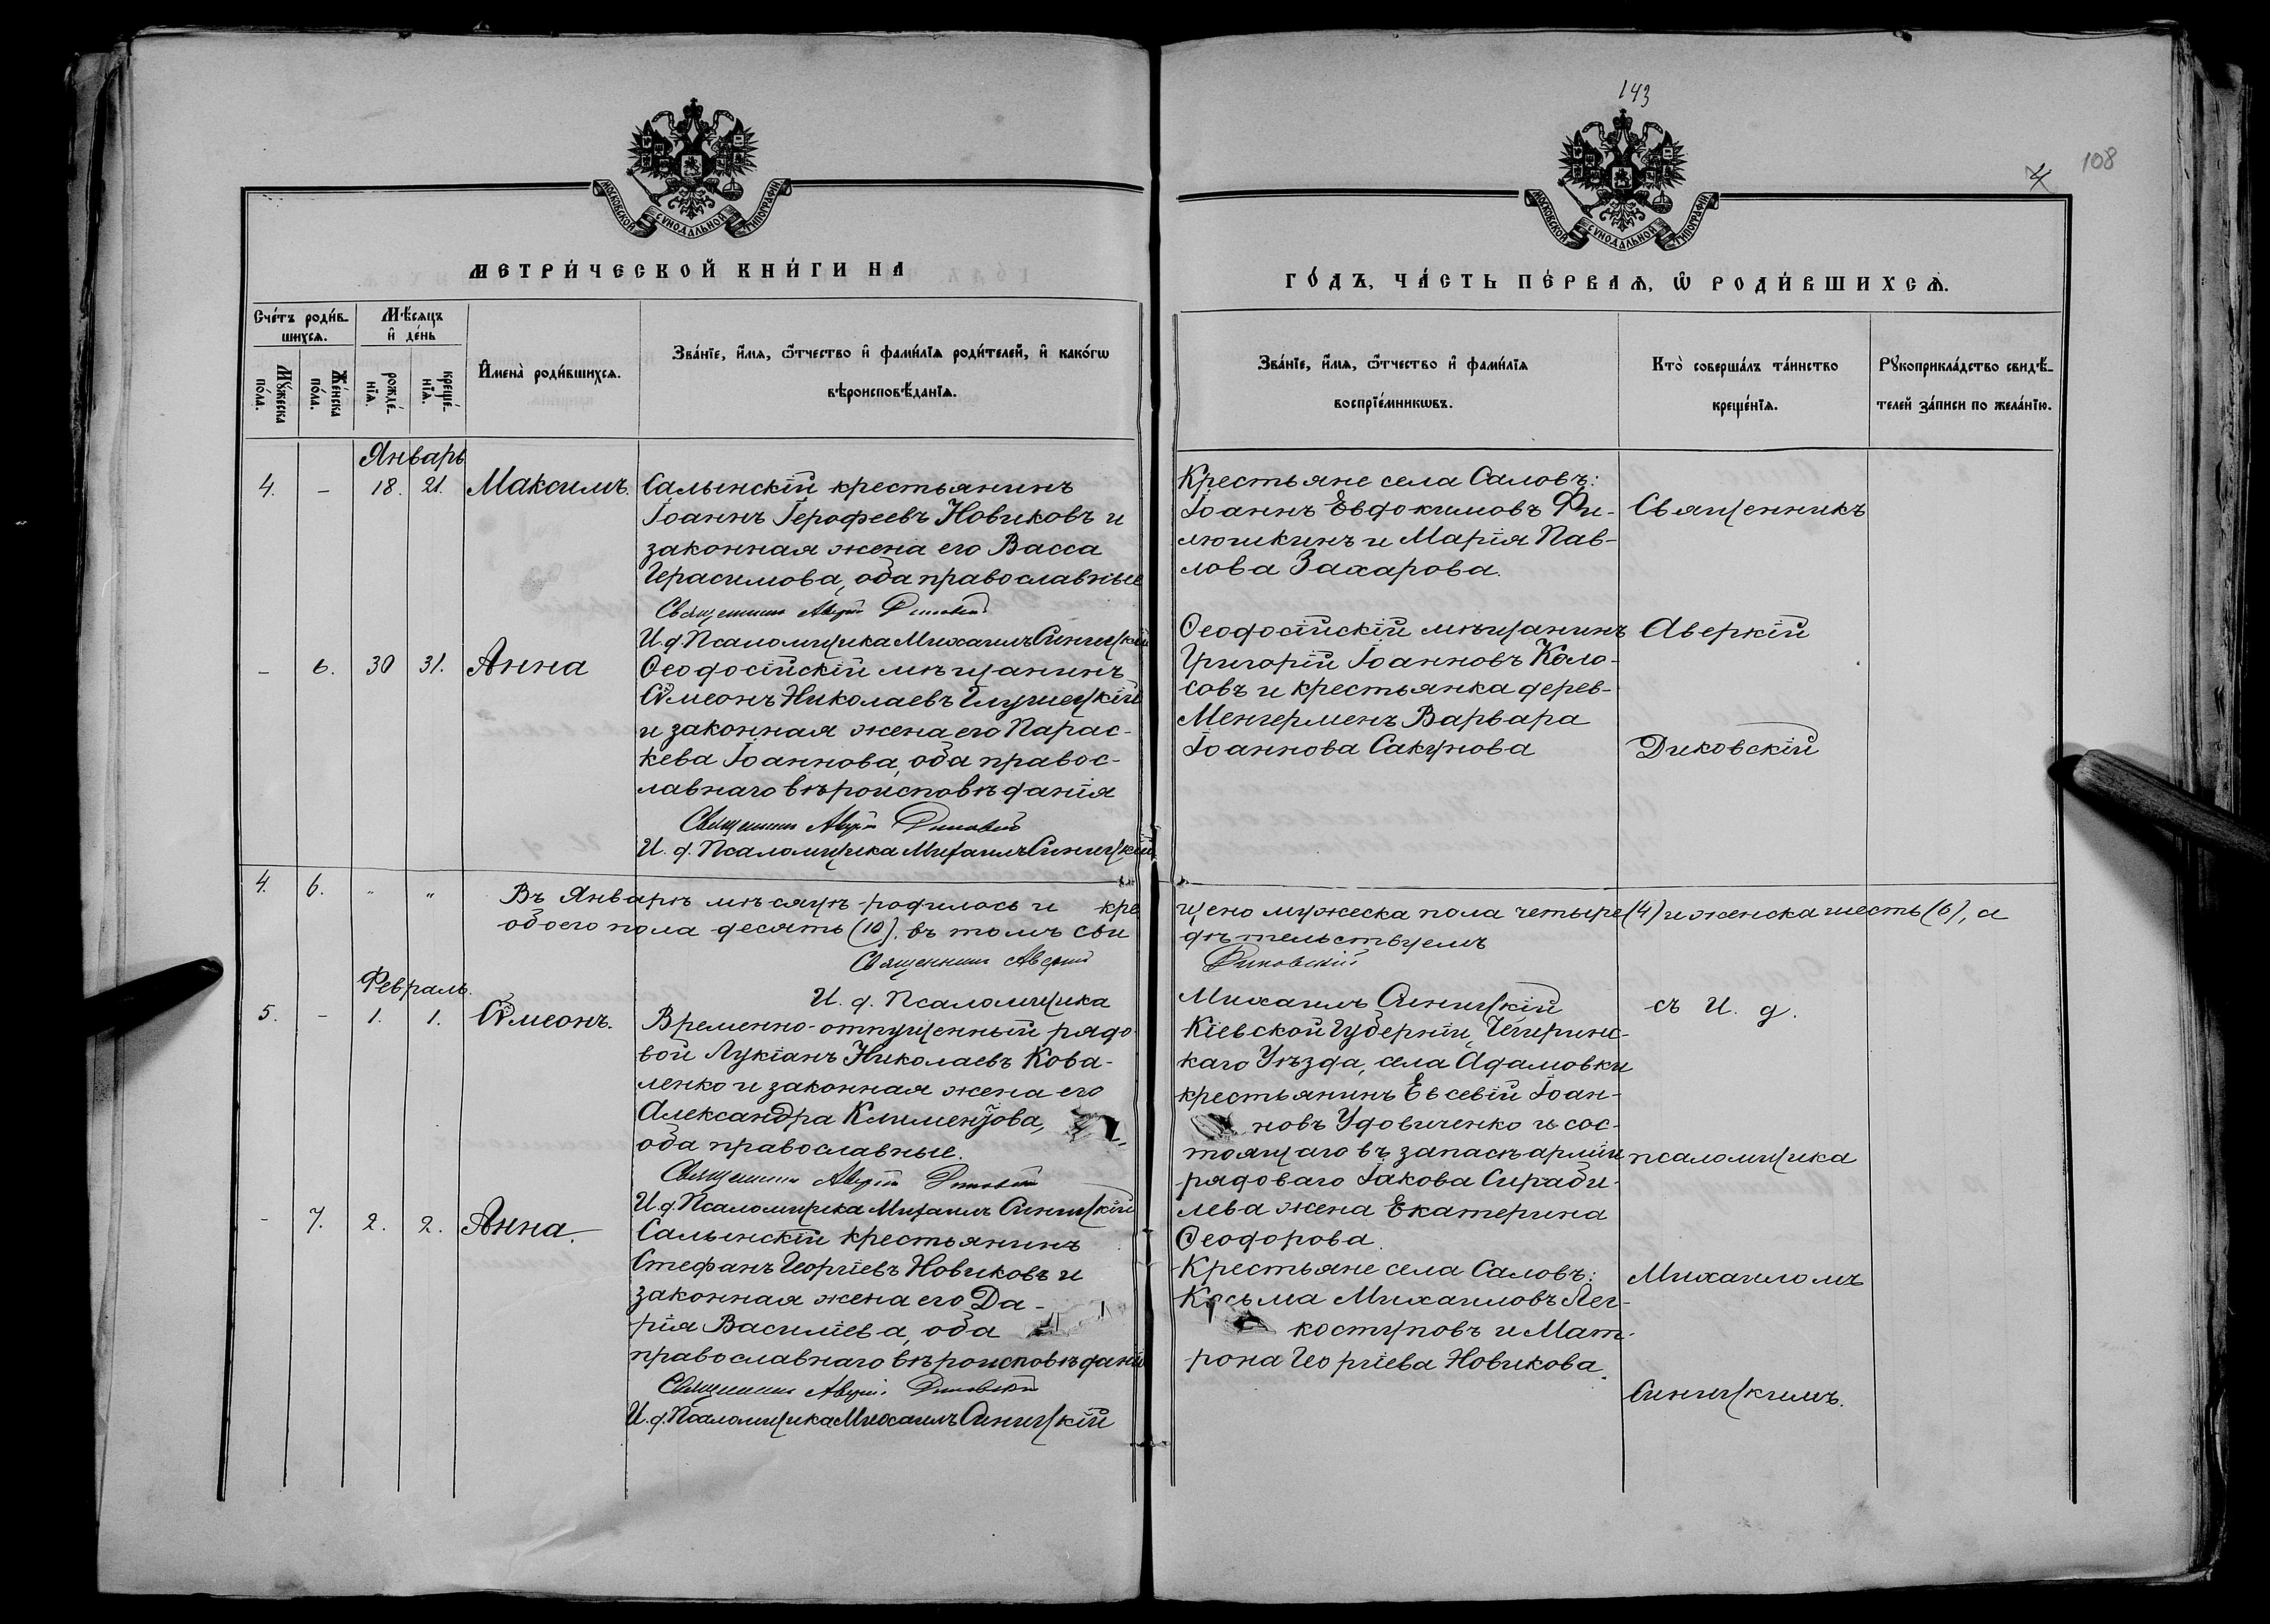 143
108
МОСКОВСКОЙ СѴНОДАЛЬНОЙ ТИПОГРАФІИ
МОСКОВСКОЙ СѴНОДАЛЬНОЙ ТИПОГРАФІИ
МЕТРИ́ЧЕСКОЙ КНИ́ГИ НА
ГО́ДЪ, ЧА́СТЬ ПЕ́РВАѦ, Ѡ҆ РОДИ́ВШИХСѦ.
Сче́тъ роди́в-
шихсѧ.
Мѣ́сѧцъ
и҆ де́нь
Мꙋ́жеска
по́ла.
Же́нска
по́ла.
рожде́-
нїѧ.
креще́-
нїѧ.
И҆мена̀ роди́вшихсѧ.
Зва́нїе, и҆́мѧ, ѻ҆́тчество и҆ фами́лїѧ роди́телей, и҆ како́гѡ
вѣроисповѣ́данїѧ.
Зва́нїе, и҆́мѧ, ѻ҆́тчество и҆ фами́лїѧ
воспрїе́мникѡвъ.
Кто̀ соверша́лъ та́инство
креще́нїѧ.
Рꙋкоприкла́дство свидѣ́-
телей за́писи по жела́нїю.
Январь
4. - 18. 21. Максимъ.
Салынскій крестьянинъ
Іоаннъ Іерофеевъ Новиковъ и
законная жена его Васса
Герасимова, оба православные
Священникъ Аверкій Диковскій
И. д. Псаломщика Михаилъ Синицкій
Крестьяне села Саловъ:
Іоаннъ Евдокимовъ Фи-
люшкинъ и Марія Пав-
лова Захарова.
Священникъ
- 6. 30 31. Анна
Ѳеодосійскій мѣщанинъ
Сѵмеонъ Николаевъ Глушецкій
и законная жена его Парас-
кева Іоаннова, оба правос-
лавнаго вѣроисповѣданія
Священникъ Аверкій Диковскій
И. д. Псаломщика Михаилъ Синицкій
Ѳеодосійскій мѣщанинъ
Григорій Іоанновъ Коло-
совъ и крестьянка дерев-
Менгерменъ Варвара
Іоаннова Сакунова
Аверкій
Диковскій
4. 6. " " Въ Январѣ мѣсяцѣ родилось и кре
щено мужеска пола четыре (4) и женска шесть (6), а
обоего пола десять (10). въ томъ сви
дѣтельствуемъ
Священникъ Аверкій
Диковскій
И. д. Псаломщика
Михаилъ Синицкій
Февраль.
5. - 1. 1. Сѵмеонъ.
Временно-отпущенный рядо-
вой Лукіанъ Николаевъ Кова-
ленко и законная жена его
Александра Климентова,
оба православные.
Священникъ Аверкій Диковскій
И. д. Псаломщика Михаилъ Синицкій
Кіевской Губерніи, Чигиринс-
каго Уѣзда, села Адамовки
крестьянинъ Евсевій Іоан-
новъ Удовиченко и сос-
тоящаго въ запасѣ арміи
рядоваго Іакова Сираби-
лева жена Екатерина
Ѳеодорова.
съ И. д.
псаломщика
- 7. 2. 2. Анна.
Салынскій крестьянинъ
Стефанъ Георгіевъ Новиковъ и
законная жена его Да-
рія Василіева, оба
православнаго вѣроисповѣданія
Священникъ Аверкій Диковскій
И. д. Псаломщика Михаилъ Синицкій
Крестьяне села Саловъ:
Косьма Михаиловъ Лег-
коступовъ и Мат-
рона Георгіева Новикова.
Михаиломъ
Синицкимъ.